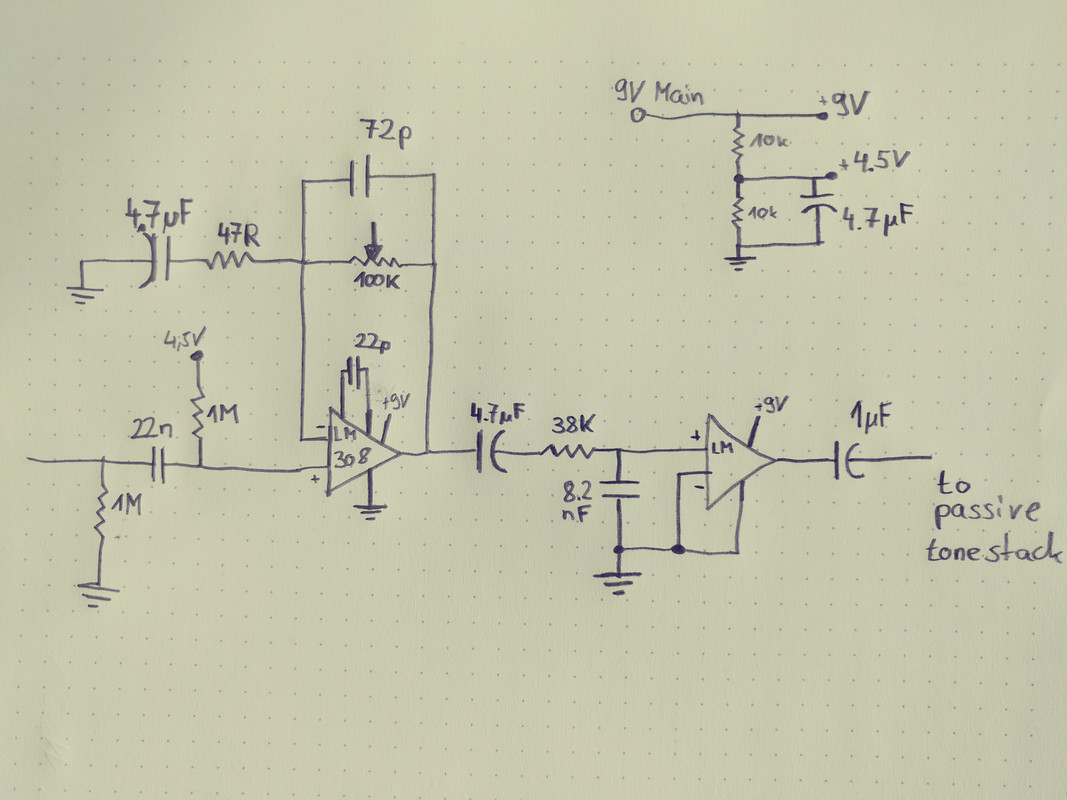 9V Main
+9V
72p
10k
+4.5V
4.7µF
47R
10k
4.7µF
100K
4,5V
22p
1M
+9V
+9V
22n
4.7µF
38K
1µF
-
LM
308
+
+
LM
-
1M
8.2
nF
to
passive
tonestack